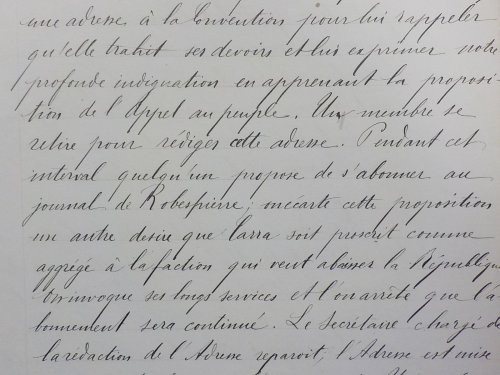 une adresse à la Convention pour lui rappeler
qu'elle trahit ses devoirs et lui exprimer notre
profonde indignation en apprenant la proposi-
tion de l'Appel au peuple. Un membre se
retire pour rédiger cette adresse. Pendant cet
interval quelqu'un propose de s'abonner au
journal de Robespierre; on écarte cette proposition
un autre desire que Carra soit proscrit comme
aggrégé à la faction qui veut abaisser la République
on invoque ses longs services et l'on arrête que l'a
bonnement sera continué. Le Secrétaire chargé de
la rédaction de l'Adresse reparoit, l'Adresse est mise